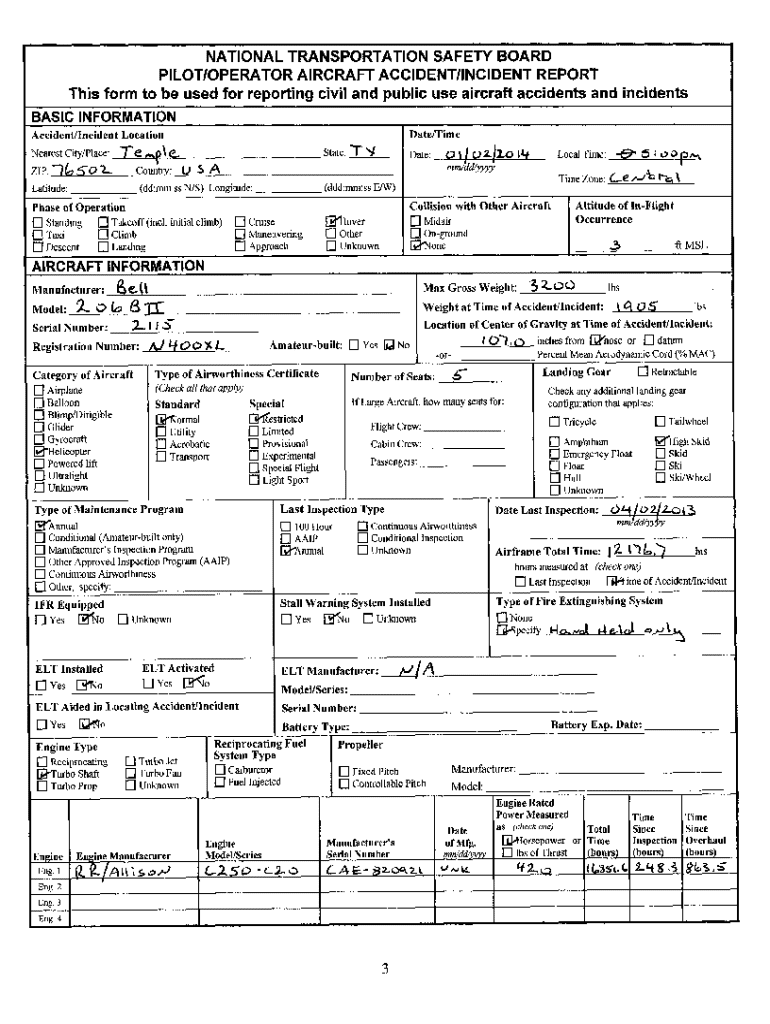 NATIONAL TRANSPORTATION SAFETY BOARD
PILOT/OPERATOR AIRCRAFT ACCIDENT/INCIDENT REPORT
This form to be used for reporting civil and public use aircraft accidents and incidents
BASIC INFORMATION
Accident/Incident Location
Nearest City/Place: Temple State: TX
ZIP: 76502 Country: USA
Latitude: (dd:mm:ss N/S) Longitude: (ddd:mm:ss E/W)
Date/Time
Date: 01/02/2014 Local Time: 5:00pm
mm/dd/yyyy
Time Zone: Central
Phase of Operation
Standing Takeoff (incl. initial climb) Cruise Hover
Taxi Climb Maneuvering Other
Descent Landing Approach Unknown
Collision with Other Aircraft
Midair
On-ground
None
Altitude of In-Flight
Occurrence
3 ft MSL
AIRCRAFT INFORMATION
Manufacturer: Bell
Model: 206BII
Serial Number: 2115
Registration Number: N400XL Amateur-built: Yes No
Max Gross Weight: 3200 lbs
Weight at Time of Accident/Incident: 1905 lbs
Location of Center of Gravity at Time of Accident/Incident:
107.0 inches from nose or datum
-or- Percent Mean Aerodynamic Cord (% MAC)
Category of Aircraft
Airplane
Balloon
Blimp/Dirigible
Glider
Gyrocraft
Helicopter
Powered lift
Ultralight
Unknown
Type of Airworthiness Certificate
(Check all that apply)
Standard Special
Normal Restricted
Utility Limited
Acrobatic Provisional
Transport Experimental
Special Flight
Light Sport
Number of Seats: 5
If Large Aircraft, how many seats for:
Flight Crew:
Cabin Crew:
Passengers:
Landing Gear Retractable
Check any additional landing gear
configuration that applies:
Tricycle Tailwheel
Amphibian High Skid
Emergency Float Skid
Float Ski
Hull Ski/Wheel
Unknown
Type of Maintenance Program
Annual
Conditional (Amateur-built only)
Manufacturer's Inspection Program
Other Approved Inspection Program (AAIP)
Continuous Airworthiness
Other, specify:
Last Inspection Type
100 Hour Continuous Airworthiness
AAIP Conditional Inspection
Annual Unknown
Date Last Inspection: 04/02/2013
mm/dd/yyyy
Airframe Total Time: 12176.7 hrs
hours measured at (check one)
Last Inspection Time of Accident/Incident
IFR Equipped
Yes No Unknown
Stall Warning System Installed
Yes No Unknown
Type of Fire Extinguishing System
None
Specify Hand Held only
ELT Installed ELT Activated
Yes No Yes No
ELT Aided in Locating Accident/Incident
Yes No
ELT Manufacturer: N/A
Model/Series:
Serial Number:
Battery Type: Battery Exp. Date:
Engine Type
Reciprocating Turbo Jet
Turbo Shaft Turbo Fan
Turbo Prop Unknown
Reciprocating Fuel
System Type
Carburetor
Fuel Injected
Propeller
Fixed Pitch Manufacturer:
Controllable Pitch Model:
Engine Engine Manufacturer
Engine
Model/Series
Manufacturer's
Serial Number
Date
of Mfg.
mm/dd/yyyy
Engine Rated
Power Measured
as (check one)
Horsepower or
lbs of Thrust
Total
Time
(hours)
Time
Since
Inspection
(hours)
Time
Since
Overhaul
(hours)
Eng. 1 RR/Allison C250-C20 CAE-820921 UNK 420 16351.6 248.3 863.5
Eng. 2
Eng. 3
Eng. 4
3